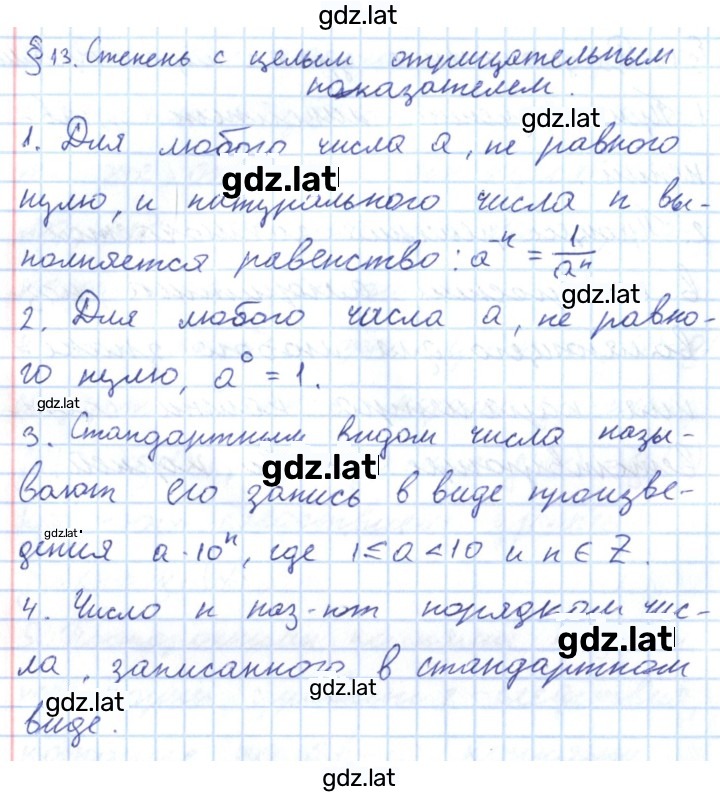 gdz.lat
§ 13. Степень с целым отрицательным
показателем.
gdz.lat
1. Для любого числа a, не равного
gdz.lat
нулю, и натурального числа n вы-
полняется равенство: a⁻ⁿ = 1/aⁿ
gdz.lat
2. Для любого числа a, не равно-
го нулю, a⁰ = 1.
gdz.lat
3. Стандартным видом числа назы-
gdz.lat
вают его запись в виде произве-
gdz.lat
дения a · 10ⁿ, где 1 ≤ a < 10 и n ∈ Z.
4. Число n наз-ют порядком чис-
gdz.lat
ла, записанного в стандартном
gdz.lat
gdz.lat
виде.
gdz.lat